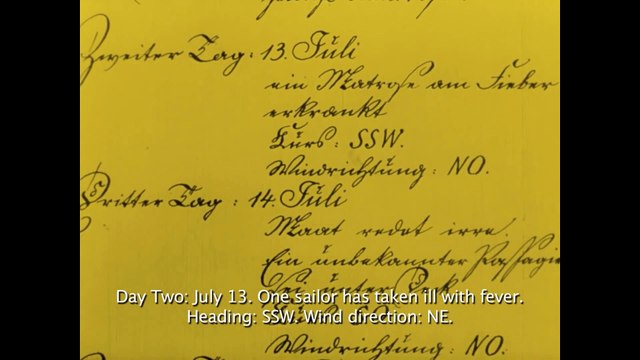 Zweiter Tag: 13. Juli
ein Matrose am Fieber
erkrankt
Kurs: SSW.
Windrichtung: NO.
Dritter Tag: 14. Juli
Maat redet irre.
Ein unbekannter Passagie
sei unter Deck
Day Two: July 13. One sailor has taken ill with fever.
Heading: SSW. Wind direction: NE.
Windrichtung: NO.